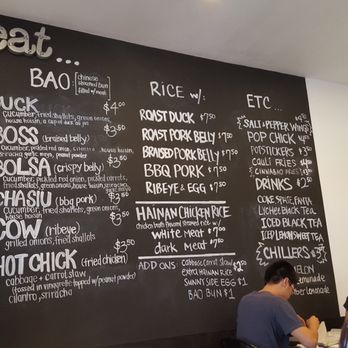 eat...
BAO: [chinese steamed bun filled w/ meat]
DUCK $4.00
cucumber, fried shallots, green onions
house hoisin, a cup of duck au jus
BOSS (braised belly) $3.50
cucumber, pickled red onion, cilantro
peanut powder
BOLSA (crispy belly) $3.50
cucumber, pickled red onion, pickled carrots,
fried shallots, green onions, house hoisin, sriracha
CHASIU (bbq pork) $3
cucumber, fried shallots, green onions,
house hoisin
COW (ribeye) $3.50
grilled onions, fried shallots
HOT CHICK (fried chicken) $3
cabbage + carrot slaw
(tossed in vinaigrette topped w/ peanut powder)
cilantro, sriracha
RICE w/:
ROAST DUCK $7.50
ROAST PORK BELLY $7.50
BRAISED PORK BELLY $7.50
BBQ PORK $7.50
RIBEYE & EGG $7.50
HAINAN CHICKEN RICE
white meat $7.50
dark meat $7.50
ADD ONS: cabbage carrot slaw $2
extra hainan rice
SUNNY SIDE EGG $1
BAO BUN $1
ETC...
SALT & PEPPER WINGS
POP CHICK
POTSTICKERS $3
CAULI FRIES
CINNAMON FRIES
DRINKS $2
COKE, SPRITE, FANTA
Lychee Black TEA
ICED BLACK TEA
ICED LEMON SWEET TEA
CHILLERS $3
MELON
Lemonade
Lemonade